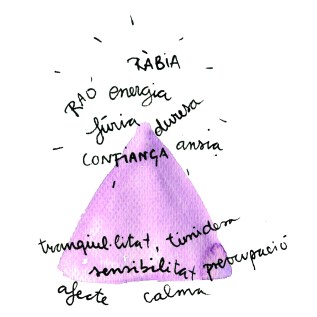 RÀBIA
RAÓ energia
fúria duresa
CONFIANÇA ansia
tranquil·litat, timidesa
sensibilitat preocupació
afecte calma